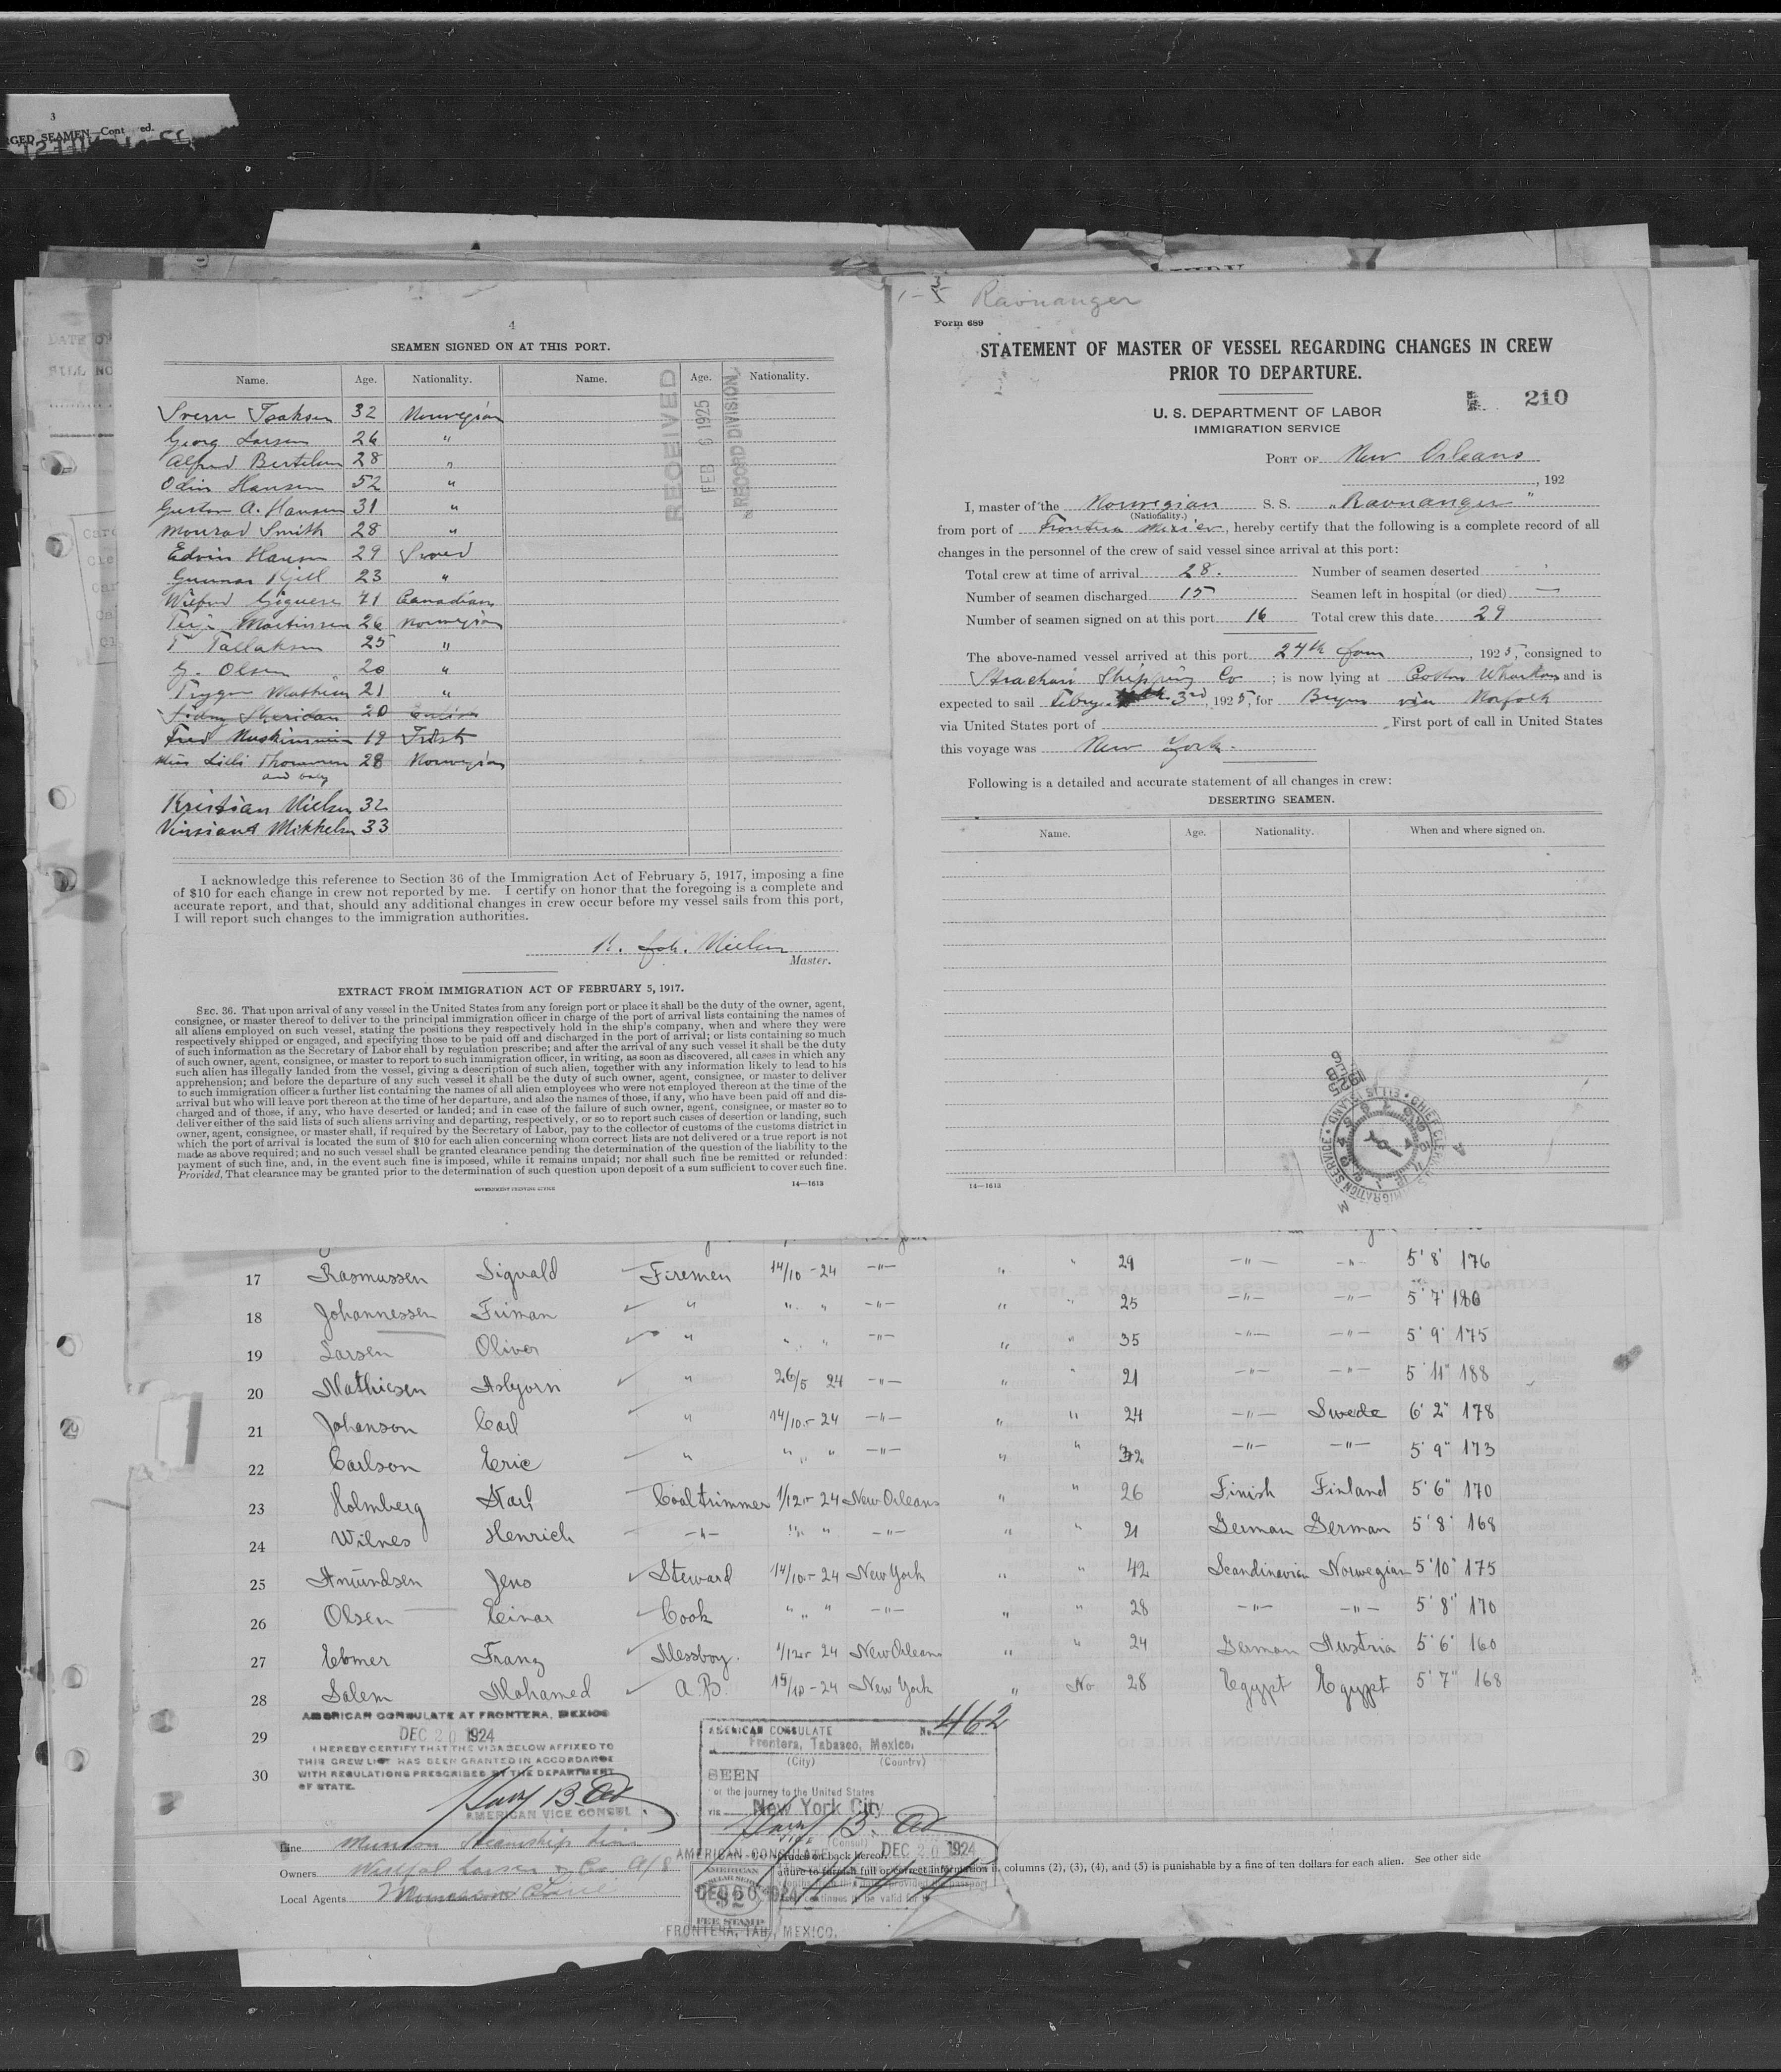 3
RGED SEAMEN—Cont ed.
4
SEAMEN SIGNED ON AT THIS PORT.
Name. Age. Nationality. Name. Age. Nationality.
RECEIVED
FEB 6 1925
RECORD DIVISION
Sverre Isaksen 32 Norwegian
Georg Larsen 26 "
Alfred Bertelsen 28 "
Odin Hansen 52 "
Gustav A. Hansen 31 "
Monrad Smith 28 "
Edvin Hansen 29 Swed
Gunnar Kjell 23 "
Wilfred Giguere 41 Canadian
Martinsen 26 Norwegian
T Tallaksen 25 "
G. Olsen 20 "
Trygve Mathisen 21 "
Sidny Sheridan 20
Fred 19 Irish
Miss Lilli Thommesen 28 Norwegian
and baby
Kristian Nielsen 32
Mikkelsen 33
I acknowledge this reference to Section 36 of the Immigration Act of February 5, 1917, imposing a fine
of $10 for each change in crew not reported by me. I certify on honor that the foregoing is a complete and
accurate report, and that, should any additional changes in crew occur before my vessel sails from this port,
I will report such changes to the immigration authorities.
K. Joh. Nielsen
Master.
EXTRACT FROM IMMIGRATION ACT OF FEBRUARY 5, 1917.
SEC. 36. That upon arrival of any vessel in the United States from any foreign port or place it shall be the duty of the owner, agent,
consignee, or master thereof to deliver to the principal immigration officer in charge of the port of arrival lists containing the names of
all aliens employed on such vessel, stating the positions they respectively hold in the ship's company, when and where they were
respectively shipped or engaged, and specifying those to be paid off and discharged in the port of arrival; or lists containing so much
of such information as the Secretary of Labor shall by regulation prescribe; and after the arrival of any such vessel it shall be the duty
of such owner, agent, consignee, or master to report to such immigration officer, in writing, as soon as discovered, all cases in which any
such alien has illegally landed from the vessel, giving a description of such alien, together with any information likely to lead to his
apprehension; and before the departure of any such vessel it shall be the duty of such owner, agent, consignee, or master to deliver
to such immigration officer a further list containing the names of all alien employees who were not employed thereon at the time of the
arrival but who will leave port thereon at the time of her departure, and also the names of those, if any, who have been paid off and dis-
charged and of those, if any, who have deserted or landed; and in case of the failure of such owner, agent, consignee, or master so to
deliver either of the said lists of such aliens arriving and departing, respectively, or so to report such cases of desertion or landing, such
owner, agent, consignee, or master shall, if required by the Secretary of Labor, pay to the collector of customs of the customs district in
which the port of arrival is located the sum of $10 for each alien concerning whom correct lists are not delivered or a true report is not
made as above required; and no such vessel shall be granted clearance pending the determination of the question of the liability to the
payment of such fine, and, in the event such fine is imposed, while it remains unpaid; nor shall such fine be remitted or refunded:
Provided, That clearance may be granted prior to the determination of such question upon deposit of a sum sufficient to cover such fine.
GOVERNMENT PRINTING OFFICE
14—1613
Ravnanger
Form 689
STATEMENT OF MASTER OF VESSEL REGARDING CHANGES IN CREW
PRIOR TO DEPARTURE.
210
U. S. DEPARTMENT OF LABOR
IMMIGRATION SERVICE
PORT OF New Orleans
, 192
I, master of the Norwegian S. S. "Ravnanger"
(Nationality.)
from port of Frontera Mexico, hereby certify that the following is a complete record of all
changes in the personnel of the crew of said vessel since arrival at this port:
Total crew at time of arrival 28. Number of seamen deserted
Number of seamen discharged 15 Seamen left in hospital (or died) —
Number of seamen signed on at this port 16 Total crew this date 29
The above-named vessel arrived at this port 24th Jan, 1925, consigned to
Strachan Shipping Co; is now lying at and is
expected to sail 3rd, 1925, for via Norfolk
via United States port of . First port of call in United States
this voyage was New York.
Following is a detailed and accurate statement of all changes in crew:
DESERTING SEAMEN.
Name. Age. Nationality. When and where signed on.
14—1613
IMMIGRATION SERVICE • ELLIS ISLAND • CHIEF CLERK
17 Rasmussen Sigvald Firemen 14/10-24 —"— " " 29 —"— —"— 5'8' 176
18 Johannessen Friman " " " —"— " " 25 —"— —"— 5'7' 180
19 Larsen Oliver " " " —"— " " 35 —"— —"— 5'9' 175
20 Mathiesen Asbjorn " 26/5 24 —"— " " 21 —"— —"— 5'11" 188
21 Johanson Carl " 14/10-24 —"— " " 24 —"— Swede 6'2" 178
22 Carlson Eric " " " —"— " " 32 —"— —"— 5'9" 173
23 Holmberg Karl Coaltrimmer 1/12-24 New Orleans " " 26 Finish Finland 5'6" 170
24 Wilnes Henrich —"— " " —"— " " 21 German German 5'8' 168
25 Amundsen Jens Steward 14/10-24 New York " " 42 Scandinavian Norwegian 5'10" 175
26 Olsen Einar Cook " " " —"— " " 28 —"— —"— 5'8" 170
27 Ebmer Franz Messboy. 1/12-24 New Orleans " " 24 German Austria 5'6' 160
28 Salem Mohamed A.B. 15/10-24 New York " No 28 Egypt Egypt 5'7" 168
29
30
AMERICAN CONSULATE AT FRONTERA, MEXICO
DEC 20 1924
I HEREBY CERTIFY THAT THE VISA BELOW AFFIXED TO
THIS CREW LIST HAS BEEN GRANTED IN ACCORDANCE
WITH REGULATIONS PRESCRIBED BY THE DEPARTMENT
OF STATE.
AMERICAN VICE CONSUL.
AMERICAN CONSULATE No. 462
at Frontera, Tabasco, Mexico.
(City) (Country)
SEEN
For the journey to the United States
via New York City
(Consul) DEC 20 1924
AMERICAN CONSULATE
DEC 20 1924
AMERICAN
CONSULAR SERVICE
$2
FEE STAMP
FRONTERA, TAB., MEXICO.
Line Munson Steamship Line
Owners Westfal Larsen & Co. A/S
Local Agents Munson Line
on back hereof.
failure to furnish full or correct information in columns (2), (3), (4), and (5) is punishable by a fine of ten dollars for each alien. See other side